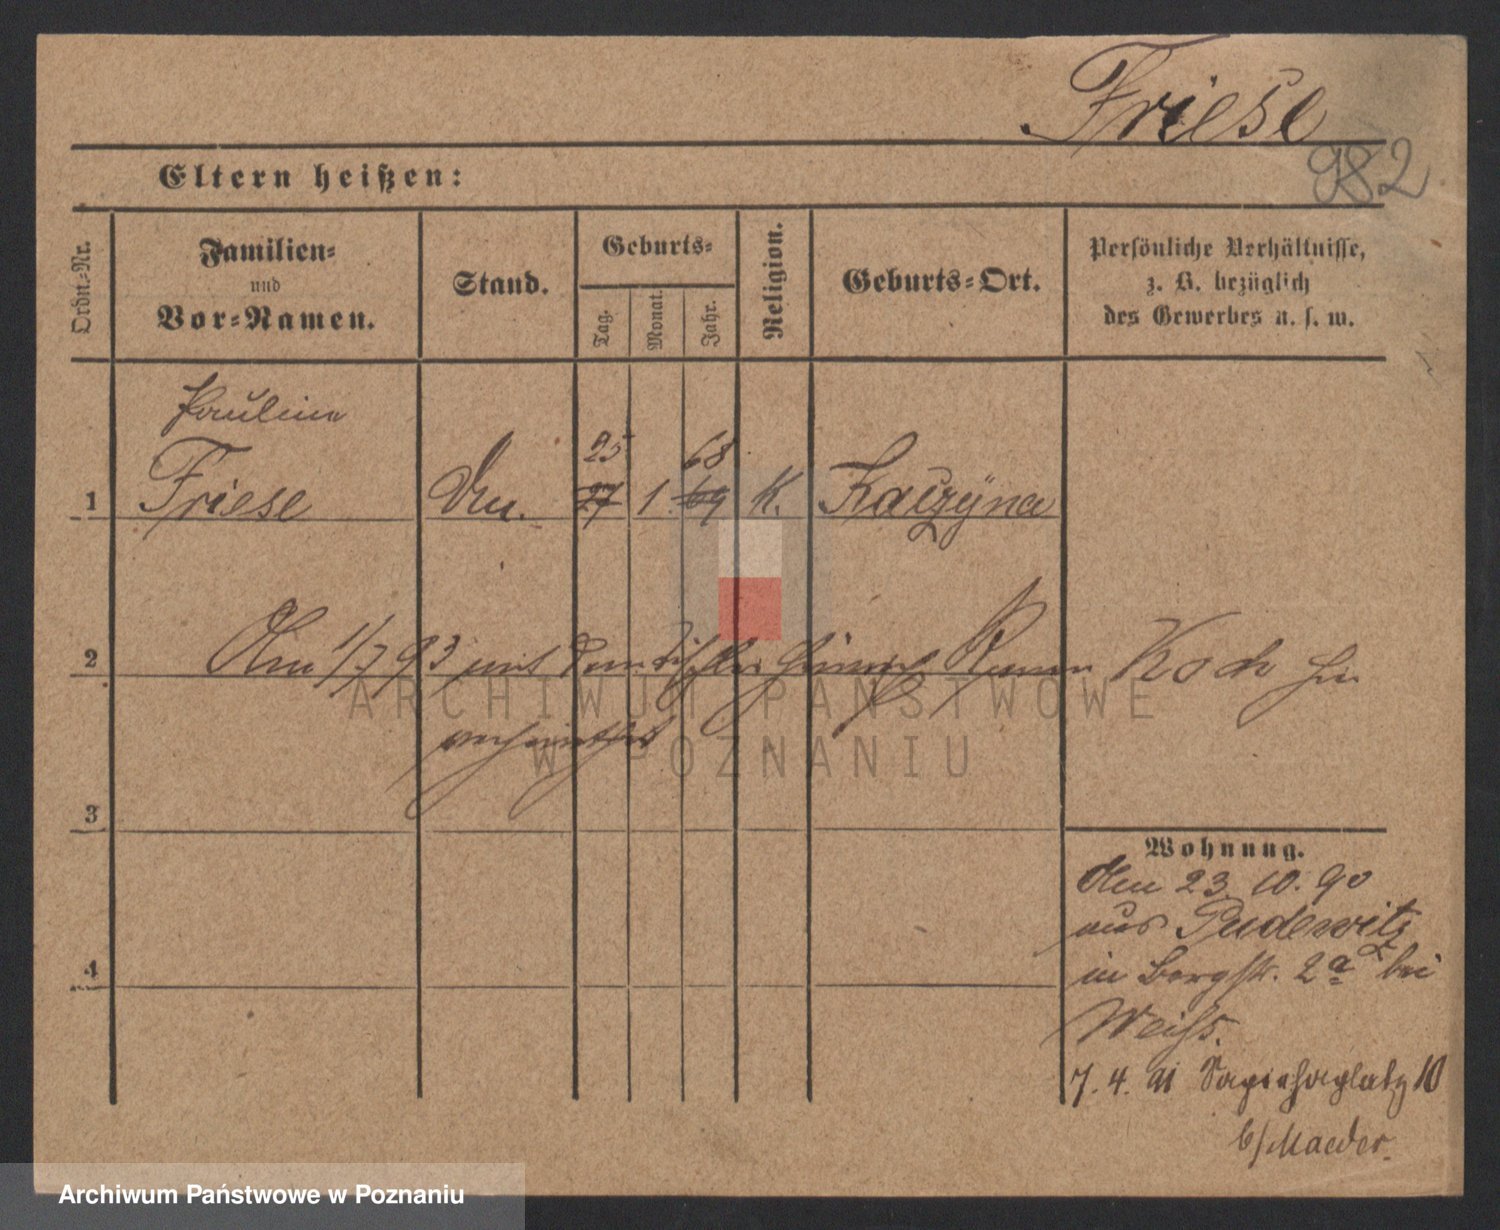 Friese
982
Eltern heißen:
Ordn.-Nr.
Familien-
und
Vor-Namen.
Stand.
Geburts-
Tag.
Monat.
Jahr.
Religion.
Geburts-Ort.
Persönliche Verhältnisse,
z. B. bezüglich
des Gewerbes u. s. w.
Pauline
25 68
1 Friese 27 1 69 K. Kaczyna
2 Am 1/7 93 mit dem Tischler Heinrich Koch hier
verheirathet
ARCHIWUM PAŃSTWOWE
W POZNANIU
3
Wohnung.
Den 23. 10. 90
aus Pudewitz
4
in Bergstr. 2a bei
Weiss.
7. 4. 91 Sapiehaplatz 10
b/Maeder.
Archiwum Państwowe w Poznaniu